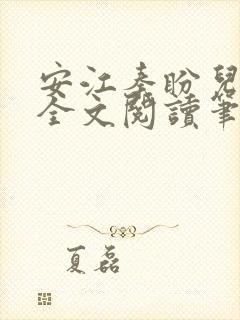 安江秦盼兒
全文閱讀筆
夏磊